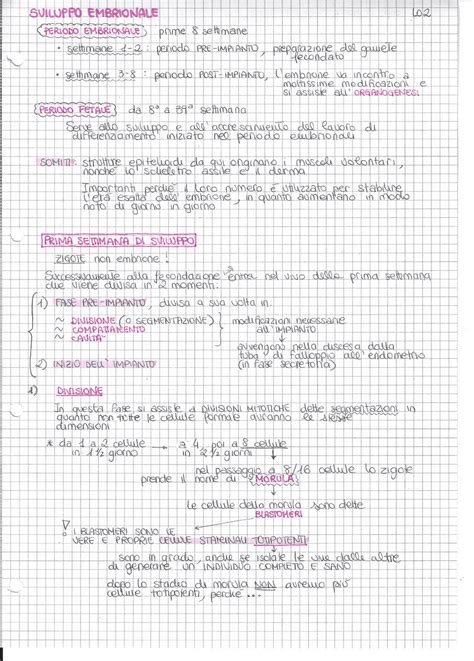 SVILUPPO EMBRIONALE
PERIODO EMBRIONALE prime 8 settimane
• settimane 1-2 : periodo PRE-IMPIANTO, preparazione del
fecondato
• settimane 3-8 : periodo POST-IMPIANTO, l'embrione va incontro a
moltissime modificazioni e
si assiste all' ORGANOGENESI
PERIODO FETALE da 8ª a 39ª settimana
Serve allo sviluppo e all'accrescimento del lavoro di
differenziamento iniziato nel periodo embrionale
SOMITI: strutture epitelioidi da qui originano i muscoli volontari,
nonché lo scheletro assile e il derma
Importanti perché il loro numero è utilizzato per stabilire
l'età esatta dell'embrione, in quanto aumentano in modo
noto di giorno in giorno
PRIMA SETTIMANA DI SVILUPPO
ZIGOTE non embrione !
Successivamente alla fecondazione entra nel vivo della prima settimana
che viene divisa in 2 momenti:
1) FASE PRE-IMPIANTO, divisa a sua volta in:
~ DIVISIONE (o SEGMENTAZIONE) modificazioni necessarie
~ COMPATTAMENTO all'IMPIANTO
~ CAVITA'
avvengono nella discesa dalla
tuba di Falloppio all'endometrio
2) INIZIO DELL' IMPIANTO (in fase secretoria)
1) DIVISIONE
In questa fase si assiste a DIVISIONI MITOTICHE dette segmentazioni in
quanto non tutte le cellule formate avranno le stesse
dimensioni
* da 1 a 2 cellule → a 4, poi a 8 cellule
in 1½ giorno in 2½ giorni
nel passaggio a 8/16 cellule lo zigote
prende il nome di MORULA
le cellule della morula sono dette
BLASTOMERI
! I BLASTOMERI SONO LE
VERE E PROPRIE CELLULE STAMINALI TOTIPOTENTI
sono in grado, anche se isolate le une dalle altre
di generare un INDIVIDUO COMPLETO E SANO
dopo lo stadio di morula NON avremo più
cellule totipotenti, perché ...